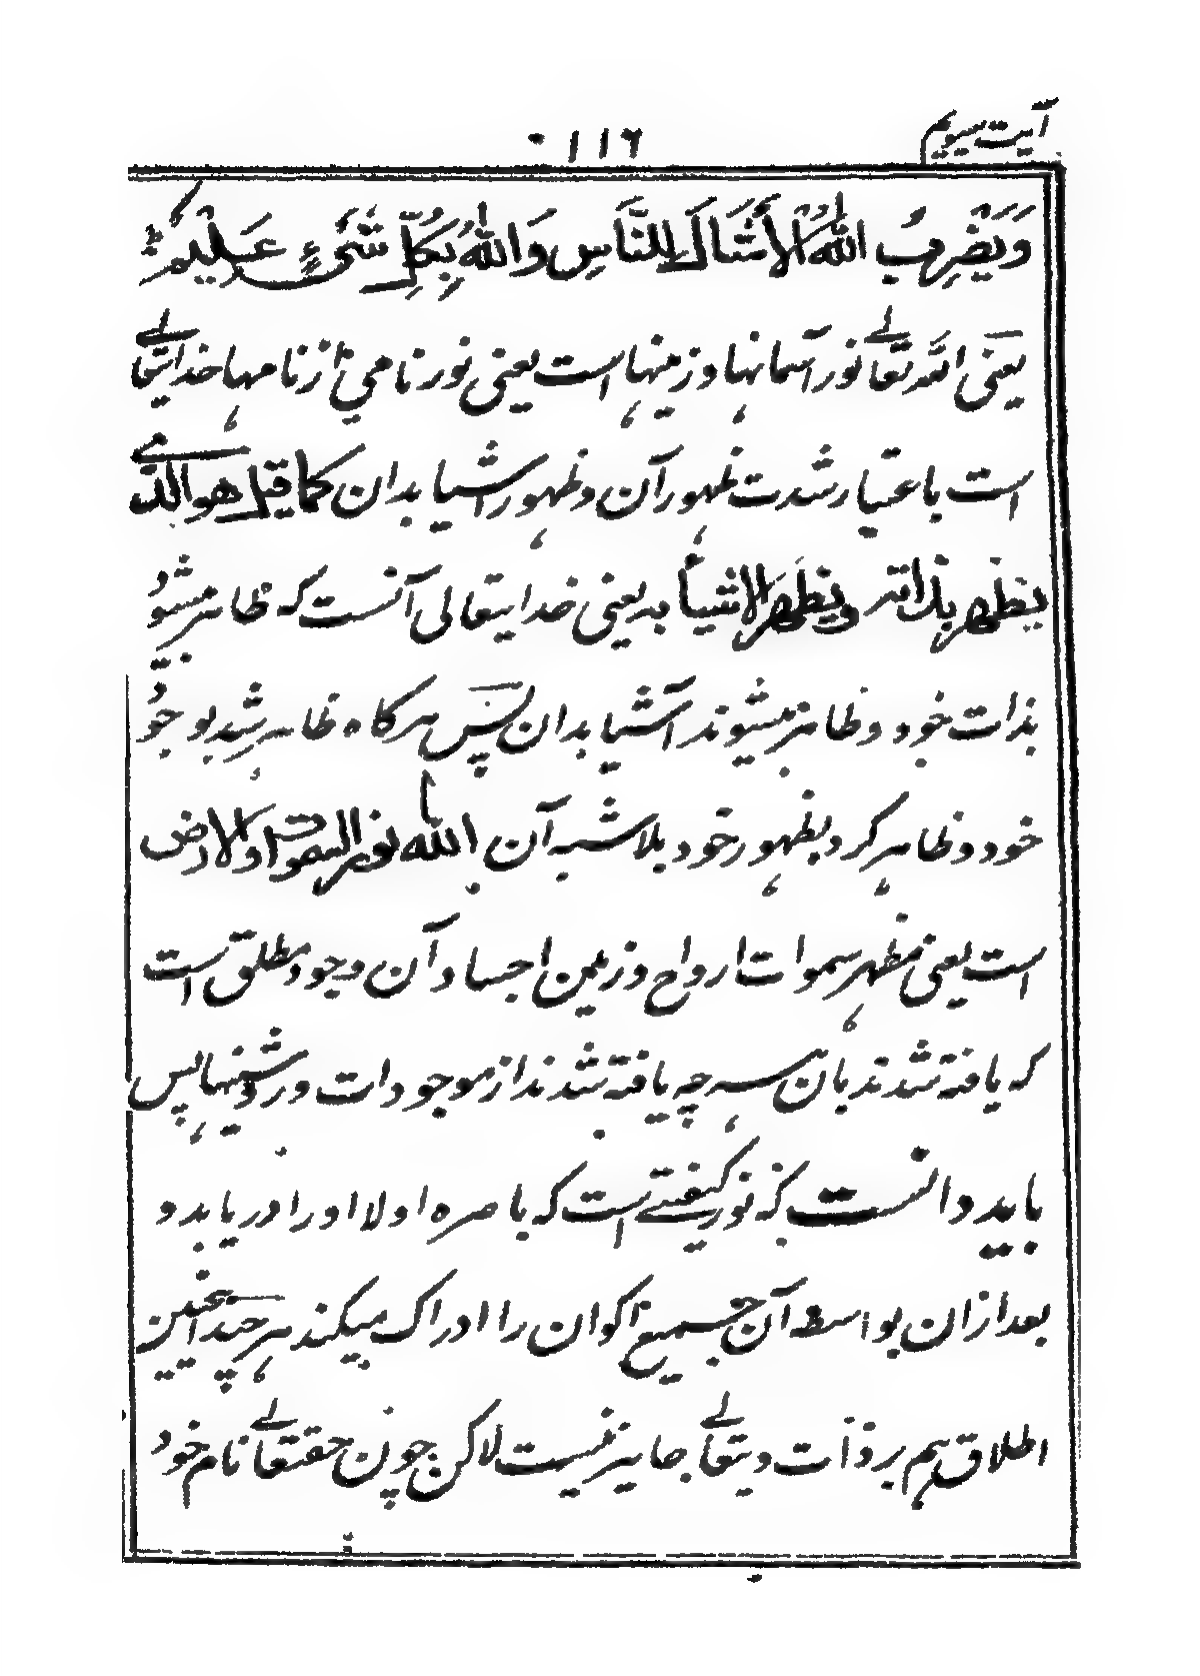 آیت سیویم
۱۱۶
وَیَضْرِبُ اللّٰهُ الْأَمْثَالَ لِلنَّاسِ وَاللّٰهُ بِکُلِّ شَیْءٍ عَلِیمٌ
یعنی الله تعالے نور آسمانها و زمینها است یعنی نور نامی از نامها خدایتعالے
است باعتبار شدت ظهور آن و ظهور اشیا بدان کما قیل هو الذے
یظهر بذاته ویظهر الاشیا به یعنی خدایتعالی آنست که ظاهر میشود
بذات خود و ظاهر میشوند آشیا بدان پس هرکاه ظاهر شد بوجود
خود و ظاهر کرد بظهور خود بلا شبه آن الله نور السموات والارض
است یعنی مظهر سموات ارواح و زمین اجساد و آن وجود مطلق است
که یافته شدند بان هر چه یافته شدند از موجودات و روشنیها پس
باید دانست که نور کیفیتے است که باصره اولا اورا دریابد و
بعد ازان بواسطه آن جمیع اکوان را ادراک میکند هر چند اینچنین
اطلاق هم بر ذات ویتعالے جایز نیست لاکن چون حقتعالے نام خود